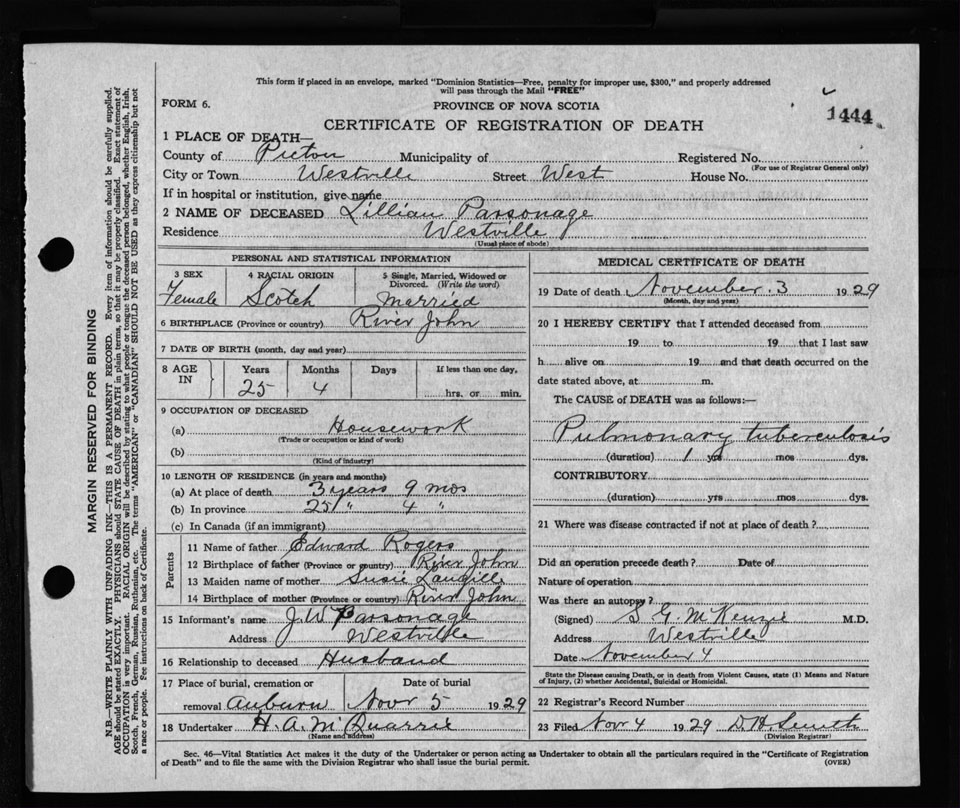 This form if placed in an envelope, marked "Dominion Statistics—Free, penalty for improper use, $300," and properly addressed
will pass through the Mail "FREE"
FORM 6.
PROVINCE OF NOVA SCOTIA
1444
CERTIFICATE OF REGISTRATION OF DEATH
1 PLACE OF DEATH—
County of Pictou Municipality of Registered No.
(For use of Registrar General only)
City or Town Westville Street West House No.
If in hospital or institution, give name
2 NAME OF DECEASED Lillian Parsonage
Residence Westville
(Usual place of abode)
PERSONAL AND STATISTICAL INFORMATION
3 SEX 4 RACIAL ORIGIN 5 Single, Married, Widowed or
Divorced. (Write the word)
Female Scotch Married
6 BIRTHPLACE (Province or country) River John
7 DATE OF BIRTH (month, day and year)
8 AGE IN Years Months Days If less than one day,
25 4 hrs. or min.
9 OCCUPATION OF DECEASED
(a) Housework
(Trade or occupation or kind of work)
(b)
(Kind of industry)
10 LENGTH OF RESIDENCE (in years and months)
(a) At place of death 3 years 9 mos
(b) In province 25 " 4 "
(c) In Canada (if an immigrant)
Parents
11 Name of father Edward Rogers
12 Birthplace of father (Province or country) River John
13 Maiden name of mother Susie Langille
14 Birthplace of mother (Province or country) River John
15 Informant's name J. W. Parsonage
Address Westville
16 Relationship to deceased Husband
17 Place of burial, cremation or Date of burial
removal Auburn Nov 5 1929
18 Undertaker H. A. McQuarrie
(Name and address)
MEDICAL CERTIFICATE OF DEATH
19 Date of death November 3 1929
(Month, day and year)
20 I HEREBY CERTIFY that I attended deceased from
19 to 19 that I last saw
h alive on 19 and that death occurred on the
date stated above, at m.
The CAUSE of DEATH was as follows:—
Pulmonary tuberculosis
(duration) 1 yrs mos dys.
CONTRIBUTORY
(duration) yrs mos dys.
21 Where was disease contracted if not at place of death?
Did an operation precede death? Date of
Nature of operation
Was there an autopsy?
(Signed) S G McKenzie M.D.
Address Westville
Date November 4
State the Disease causing Death, or in death from Violent Causes, state (1) Means and Nature
of Injury, (2) whether Accidental, Suicidal or Homicidal.
22 Registrar's Record Number
23 Filed Nov 4 1929 D H Smith
(Division Registrar)
Sec. 46—Vital Statistics Act makes it the duty of the Undertaker or person acting as Undertaker to obtain all the particulars required in the "Certificate of Registration
of Death" and to file the same with the Division Registrar who shall issue the burial permit. (OVER)
MARGIN RESERVED FOR BINDING
N.B.—WRITE PLAINLY WITH UNFADING INK—THIS IS A PERMANENT RECORD. Every item of information should be carefully supplied.
AGE should be stated EXACTLY. PHYSICIANS should STATE CAUSE OF DEATH in plain terms, so that it may be properly classified. Exact statement of
OCCUPATION is very important. RACIAL ORIGIN will be described by stating to what people or tongue the deceased person belonged, whether English, Irish,
Scotch, French, German, Russian, Ruthenian, etc. The terms "AMERICAN" or "CANADIAN" SHOULD NOT BE USED as they express citizenship but not
a race or people. Fee instructions on back of Certificate.